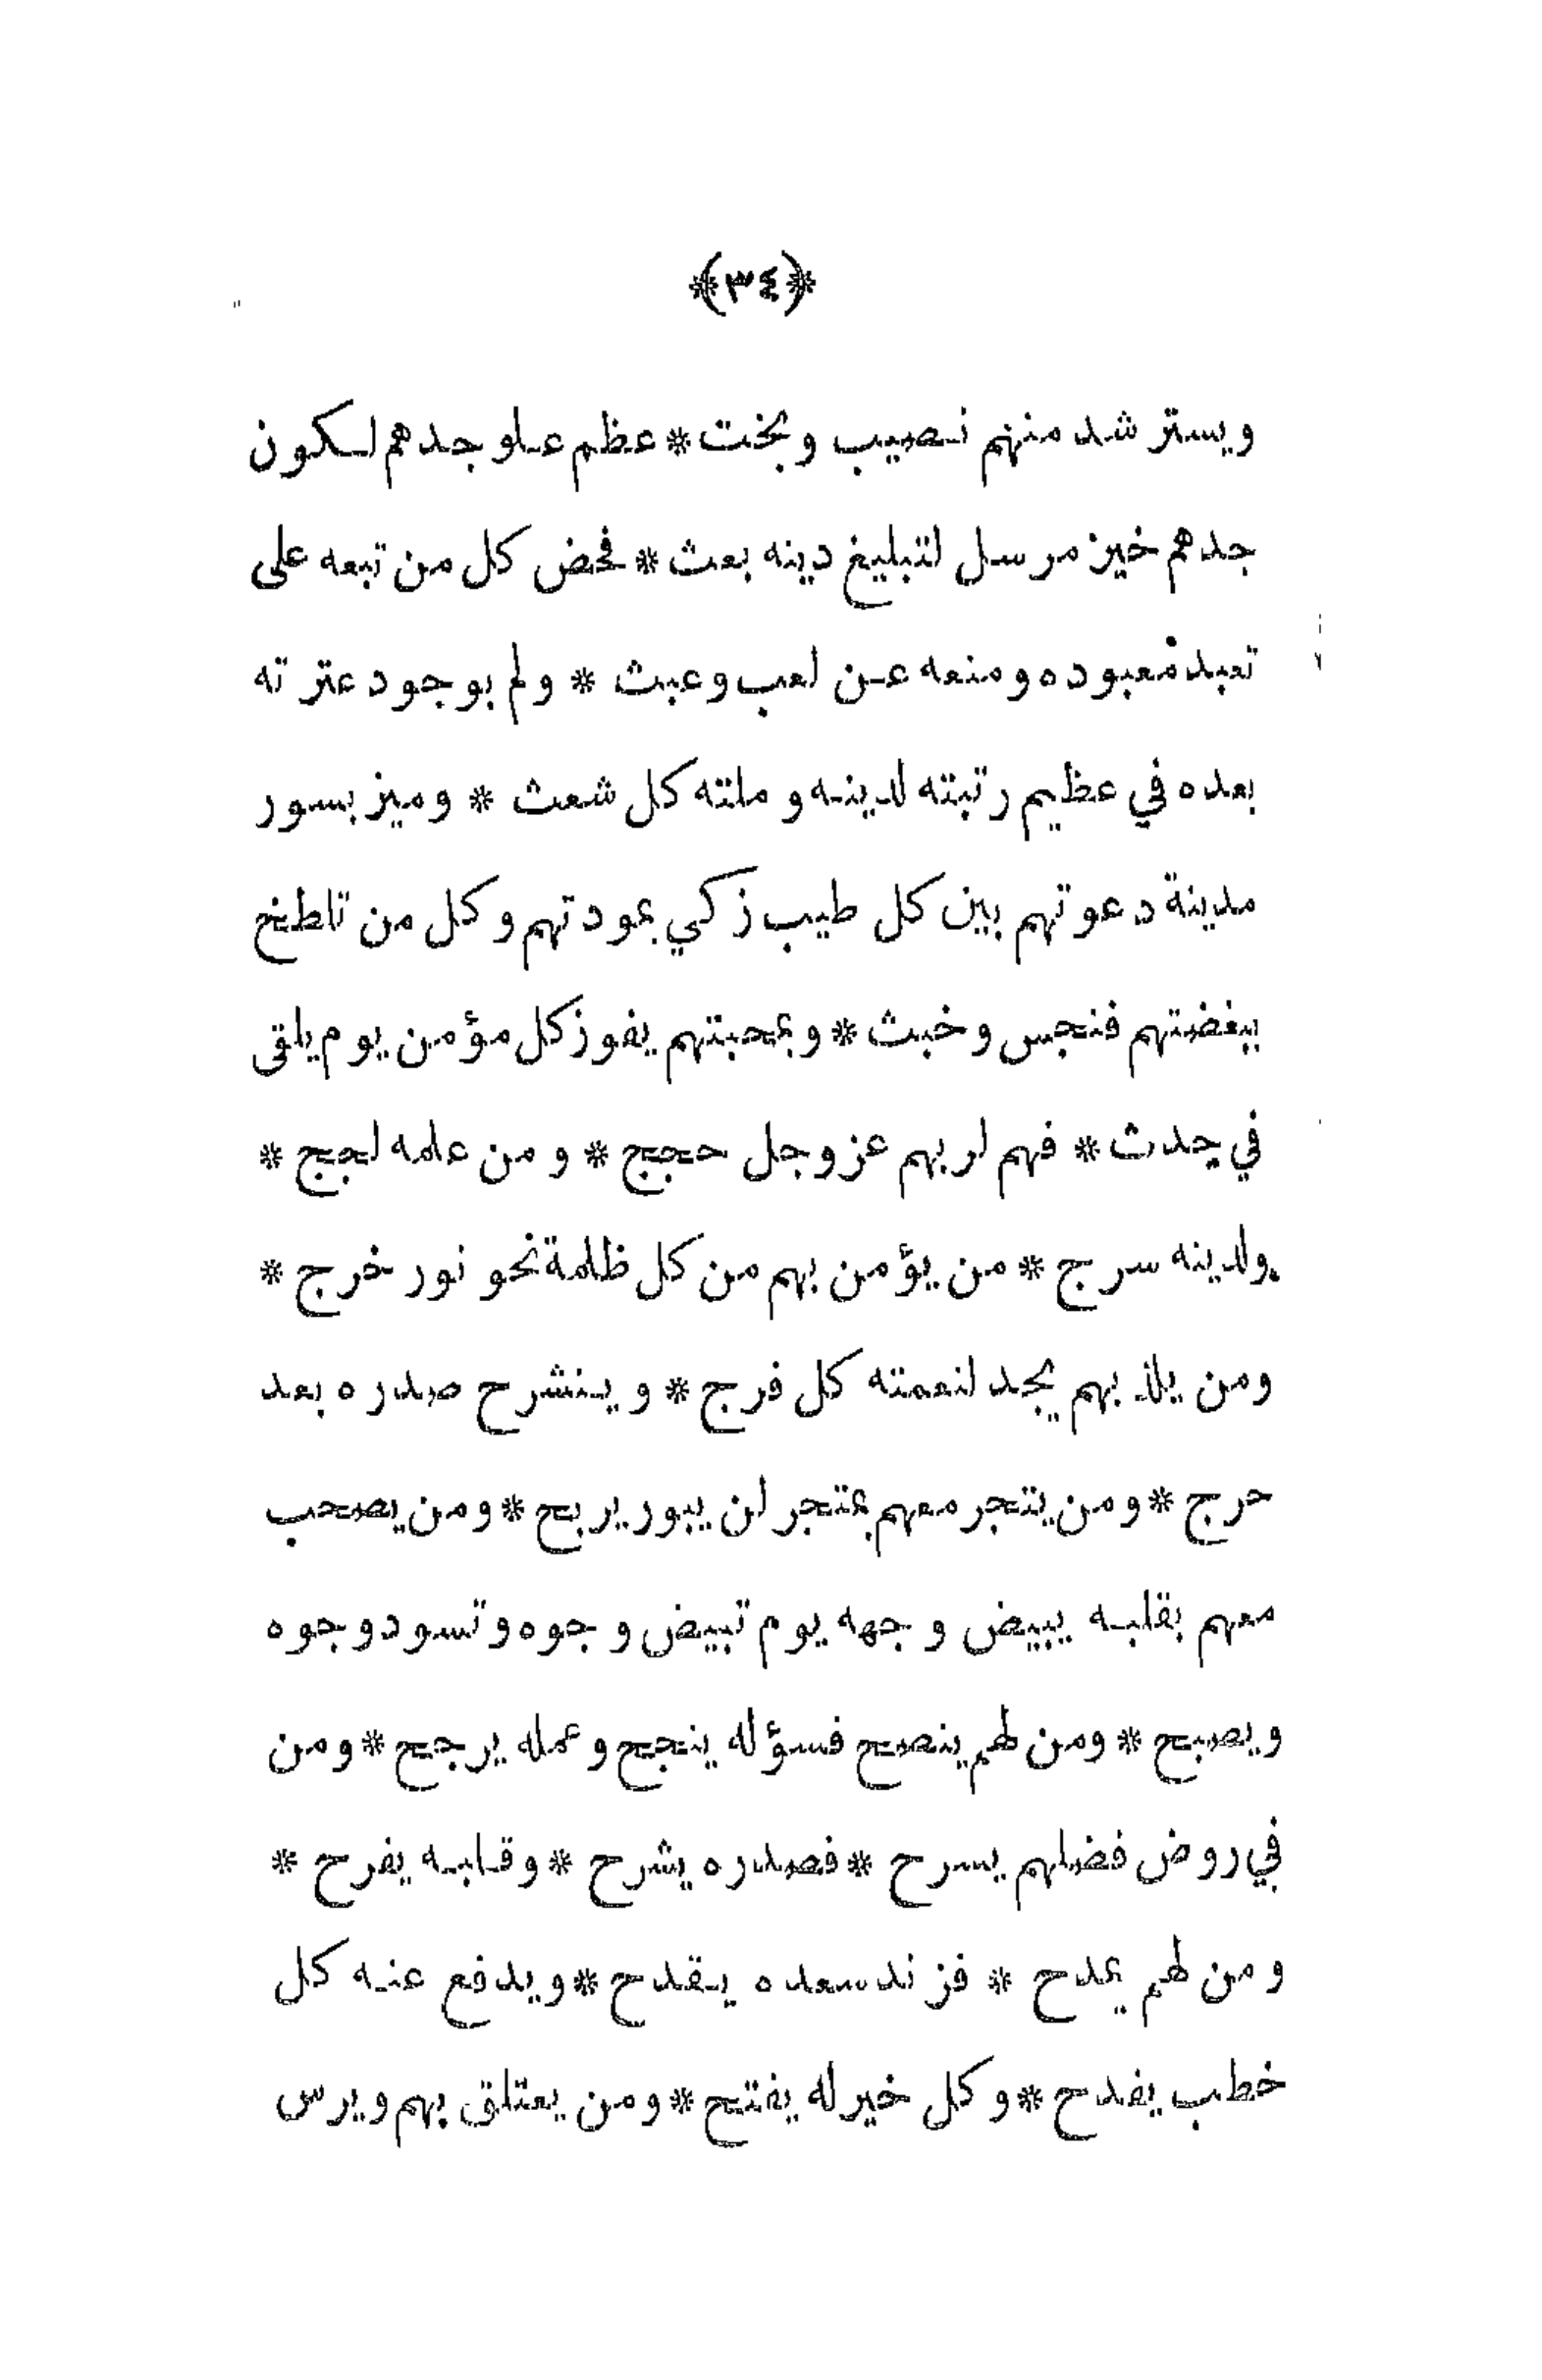 ﴿٣٤﴾
ويسترشد منهم نصيب وبخت * عظم علو جدهم لكون
جدهم خير مرسل لتبليغ دينه بعث * فحض كل من تبعه على
تعبد معبوده ومنعه عن لعب وعبث * ولم بوجود عترته
بعده في عظيم رتبته لدينه وملته كل شعث * وميز بسور
مدينة دعوتهم بين كل طيب زكي بمودتهم وكل من تلطخ
ببغضتهم فنجس وخبث * وبمحبتهم يفوز كل مؤمن يوم يلقى
في جدث * فهم لربهم عز وجل حجج * ومن علمه لجج *
ولدينه سرج * من يؤمن بهم من كل ظلمة نحو نور خرج *
ومن يلذ بهم يجد لنعمته كل فرج * وينشرح صدره بعد
حرج * ومن يتجر معهم بمتجر لن يبور يربح * ومن يصحب
معهم بقلبه يبيض وجهه يوم تبيض وجوه وتسود وجوه
ويصبح * ومن لهم ينصح فسؤله ينجح وعمله يرجح * ومن
في روض فضلهم يسرح * فصدره يشرح * وقلبه يفرح *
ومن لهم يمدح * فزند سعده يقدح * ويدفع عنه كل
خطب يفدح * وكل خير له يفتح * ومن يعتلق بهم ويرس